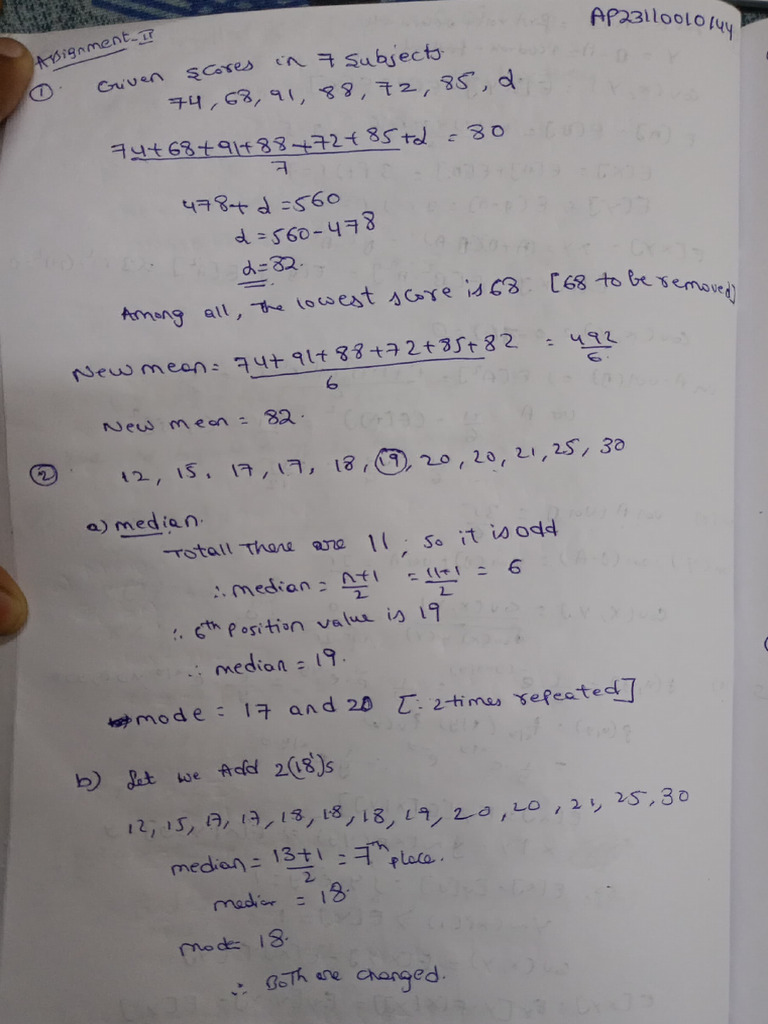 AP23110010144
Assignment-II
① Given scores in 7 subjects.
74, 68, 91, 88, 72, 85, d.
74+68+91+88+72+85+d = 80
7
478+d = 560
d = 560-478
d=82.
Among all, The lowest score is 68. [68 to be removed]
New mean = 74+91+88+72+85+82 = 492
6 6
New mean = 82.
② 12, 15, 17, 17, 18, 19, 20, 20, 21, 25, 30
a) median.
Totall There are 11, so it is odd
∴ median = n+1/2 = 11+1/2 = 6
∴ 6th position value is 19
∴ median = 19.
mode = 17 and 20 [∵ 2-times repeated]
b) Let we Add 2(18')s
12, 15, 17, 17, 18, 18, 18, 19, 20, 20, 21, 25, 30
median = 13+1/2 = 7th place.
median = 18.
mode = 18.
∴ Both are changed.